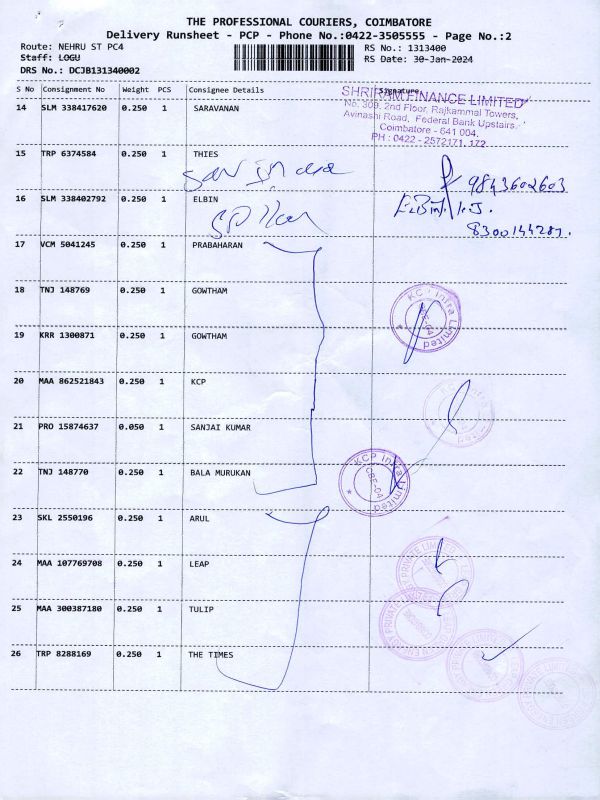 THE PROFESSIONAL COURIERS, COIMBATORE
Delivery Runsheet - PCP - Phone No.:0422-3505555 - Page No.:2
Route: NEHRU ST PC4
RS No.: 1313400
Staff: LOGU
RS Date: 30-Jan-2024
DRS No.: DCJB131340002
S No Consignment No Weight PCS Consignee Details Signature
14 SLM 338417620 0.250 1 SARAVANAN
SHRIRAM FINANCE LIMITED
No. 309, 2nd Floor, Rajkammal Towers,
Avinashi Road, Federal Bank Upstairs,
Coimbatore - 641 004.
PH : 0422 - 2572171, 172
15 TRP 6374584 0.250 1 THIES
9843602603
16 SLM 338402792 0.250 1 ELBIN
8300144281.
17 VCM 5041245 0.250 1 PRABAHARAN
18 TNJ 148769 0.250 1 GOWTHAM
KCP Infra Limited
CBE-04
19 KRR 1300871 0.250 1 GOWTHAM
20 MAA 862521843 0.250 1 KCP
21 PRO 15874637 0.050 1 SANJAI KUMAR
22 TNJ 148770 0.250 1 BALA MURUKAN
KCP Infra Limited
CBE-04
23 SKL 2550196 0.250 1 ARUL
24 MAA 107769708 0.250 1 LEAP
25 MAA 300387180 0.250 1 TULIP
26 TRP 8288169 0.250 1 THE TIMES